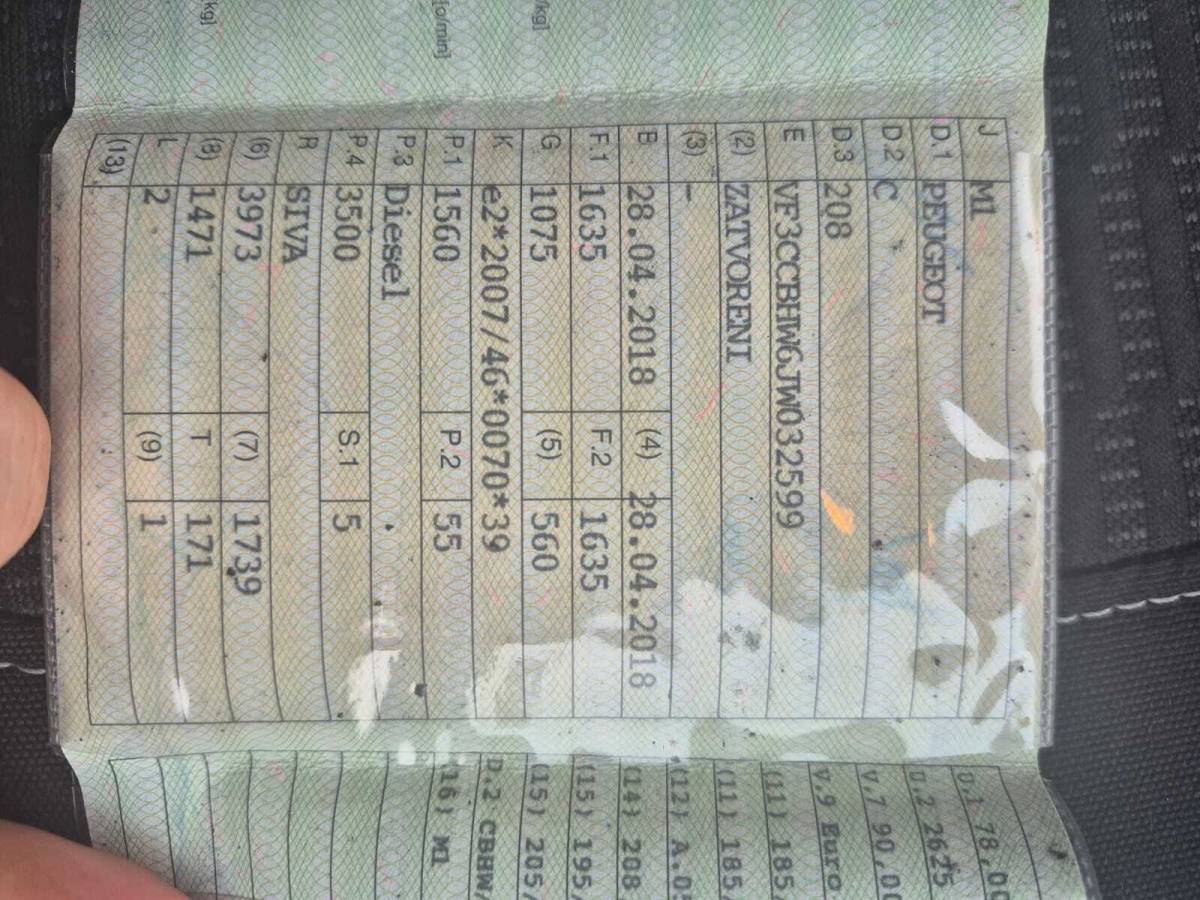 /kg]
[o/min]
/kg]
J M1
D.1 PEUGEOT
D.2 C
D.3 208
E VF3CCBHW6JW032599
(2) ZATVORENI
(3) -
B 28.04.2018 (4) 28.04.2018
F.1 1635 F.2 1635
G 1075 (5) 560
K e2*2007/46*0070*39
P.1 1560 P.2 55
P.3 Diesel
P.4 3500 S.1 5
R SIVA
(6) 3973 (7) 1739
(8) 1471 T 171
L 2 (9) 1
(13)
U.1 78,00
U.2 2625
V.7 90,00
V.9 Euro
(11) 185/
(11) 185/
(12) A.05
(14) 208
(15) 195/
(15) 205/
D.2 CBHW/
(16) M1